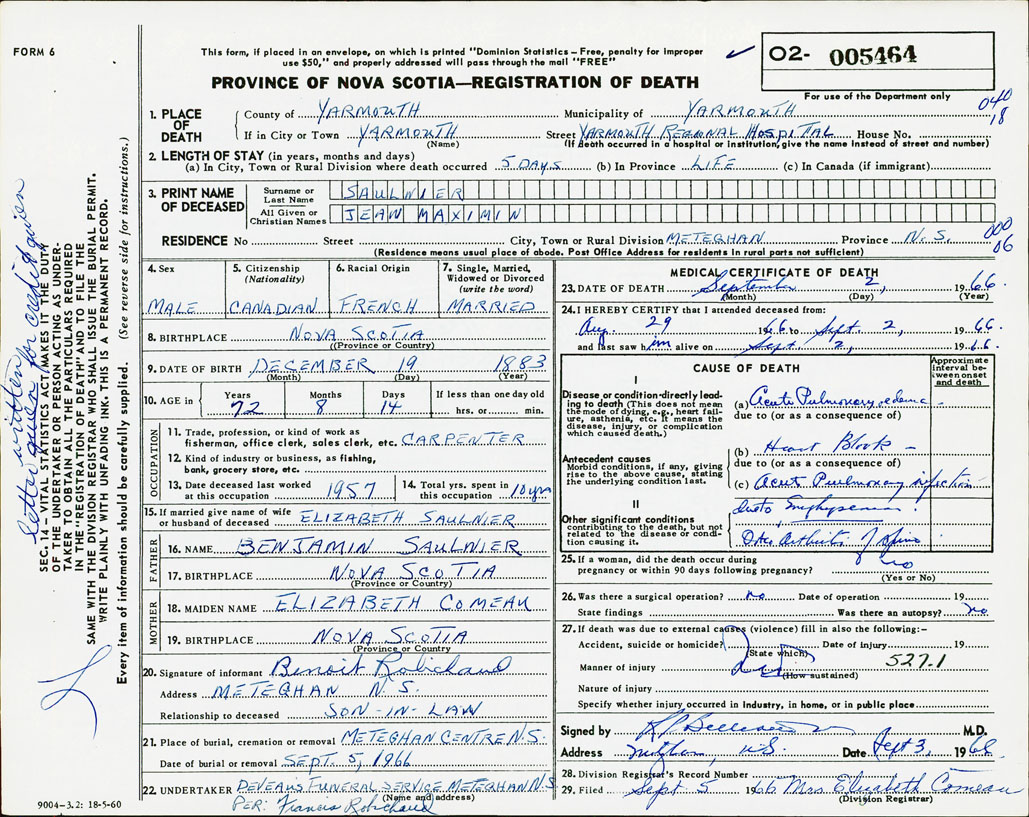 FORM 6
This form, if placed in an envelope, on which is printed "Dominion Statistics – Free, penalty for improper
use $50," and properly addressed will pass through the mail "FREE"
PROVINCE OF NOVA SCOTIA—REGISTRATION OF DEATH
O2- 005464
For use of the Department only
040
18
1. PLACE OF DEATH
County of YARMOUTH Municipality of YARMOUTH
If in City or Town YARMOUTH Street YARMOUTH REGIONAL HOSPITAL House No.
(Name) (If death occurred in a hospital or institution, give the name instead of street and number)
2. LENGTH OF STAY (in years, months and days)
(a) In City, Town or Rural Division where death occurred 5 DAYS (b) In Province LIFE (c) In Canada (if immigrant)
3. PRINT NAME OF DECEASED
Surname or Last Name SAULNIER
All Given or Christian Names JEAN MAXIMIN
000
06
RESIDENCE No Street City, Town or Rural Division METEGHAN Province N.S.
(Residence means usual place of abode. Post Office Address for residents in rural parts not sufficient)
4. Sex
MALE
5. Citizenship (Nationality)
CANADIAN
6. Racial Origin
FRENCH
7. Single, Married, Widowed or Divorced (write the word)
MARRIED
8. BIRTHPLACE NOVA SCOTIA
(Province or Country)
9. DATE OF BIRTH DECEMBER 19 1883
(Month) (Day) (Year)
10. AGE in Years Months Days If less than one day old
72 8 14 hrs. or min.
OCCUPATION
11. Trade, profession, or kind of work as
fisherman, office clerk, sales clerk, etc. CARPENTER
12. Kind of industry or business, as fishing,
bank, grocery store, etc.
13. Date deceased last worked
at this occupation 1957
14. Total yrs. spent in
this occupation 10 yrs
15. If married give name of wife
or husband of deceased ELIZABETH SAULNIER
FATHER
16. NAME BENJAMIN SAULNIER
17. BIRTHPLACE NOVA SCOTIA
(Province or Country)
MOTHER
18. MAIDEN NAME ELIZABETH COMEAU
19. BIRTHPLACE NOVA SCOTIA
(Province or Country)
20. Signature of informant Benoit Robichaud
Address METEGHAN N.S.
Relationship to deceased SON-IN-LAW
21. Place of burial, cremation or removal METEGHAN CENTRE N.S.
Date of burial or removal SEPT. 5, 1966
22. UNDERTAKER DEVEAUS FUNERAL SERVICE METEGHAN N.S.
(Name and address)
PER: Francis Robichaud
9004–3.2: 18-5-60
MEDICAL CERTIFICATE OF DEATH
23. DATE OF DEATH September 2, 1966.
(Month) (Day) (Year)
24. I HEREBY CERTIFY that I attended deceased from:
Aug. 29 1966 to Sept. 2, 1966
and last saw him alive on Sept. 2, 1966.
CAUSE OF DEATH
Approximate interval between onset and death
I
Disease or condition directly leading to death (This does not mean
the mode of dying, e.g., heart failure, asthenia, etc. It means the
disease, injury, or complication
which caused death.)
(a) Acute Pulmonary edema
due to (or as a consequence of)
Antecedent causes
Morbid conditions, if any, giving
rise to the above cause, stating
the underlying condition last.
(b) Heart Block –
due to (or as a consequence of)
(c) Acute Pulmonary infection
II
due to Emphysema.
Other significant conditions
contributing to the death, but not
related to the disease or condition causing it.
Osteo Arthritis of Spine
25. If a woman, did the death occur during
pregnancy or within 90 days following pregnancy? no
(Yes or No)
26. Was there a surgical operation? no. Date of operation 19
State findings Was there an autopsy? no
27. If death was due to external causes (violence) fill in also the following:–
Accident, suicide or homicide? Date of injury 19
(State which)
Manner of injury 527.1
(How sustained)
Nature of injury
Specify whether injury occurred in Industry, in home, or in public place
Signed by M.D.
Address N.S. Date Sept 3, 1966
28. Division Registrar's Record Number
29. Filed Sept 5 1966 Mrs Elizabeth Comeau
(Division Registrar)
letter written
letter given for credit given
SEC. 14 – VITAL STATISTICS ACT, MAKES IT THE DUTY
OF THE UNDERTAKER OR PERSON ACTING AS UNDERTAKER
TO OBTAIN ALL THE PARTICULARS REQUIRED
IN THE "REGISTRATION OF DEATH" AND TO FILE THE
SAME WITH THE DIVISION REGISTRAR WHO SHALL ISSUE THE BURIAL PERMIT.
WRITE PLAINLY WITH UNFADING INK. THIS IS A PERMANENT RECORD.
Every item of information should be carefully supplied. (See reverse side for instructions.)